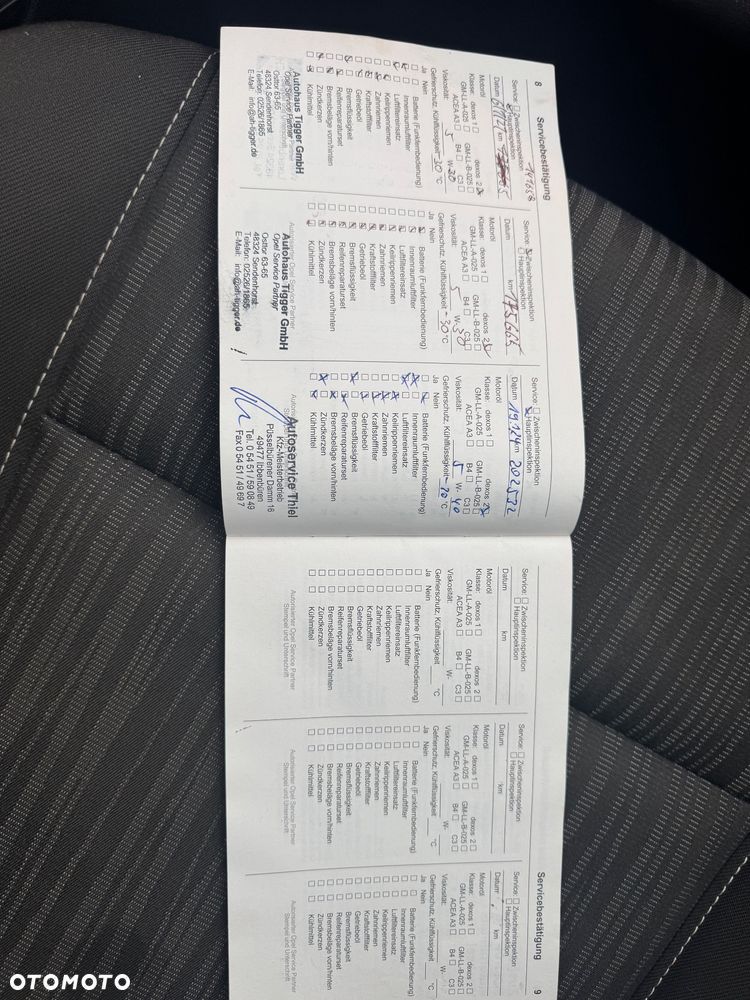 8 Servicebestätigung
Service: Zwischeninspektion
Hauptinspektion
141658
Datum km
Motoröl
Klasse: dexos 1 dexos 2
GM-LL-A-025 GM-LL-B-025
ACEA A3 B4 C3
Viskosität: 5 W- 30
Gefrierschutz, Kühlflüssigkeit -30 °C
Ja Nein
Batterie (Funkfernbedienung)
Innenraumluftfilter
Luftfiltereinsatz
Keilrippenriemen
Zahnriemen
Kraftstofffilter
Getriebeöl
Bremsflüssigkeit
Reifenreparaturset
Bremsbeläge vorn/hinten
Zündkerzen
Kühlmittel
Autohaus Tigger GmbH
Opel Service Partner
Osttor 63-65
48324 Sendenhorst
Telefon: 02526/1865
E-Mail: info@ah-tigger.de
Service: Zwischeninspektion
Hauptinspektion
Datum km 175665
Motoröl
Klasse: dexos 1 dexos 2
GM-LL-A-025 GM-LL-B-025
ACEA A3 B4 C3
Viskosität: 5 W- 30
Gefrierschutz, Kühlflüssigkeit -30 °C
Ja Nein
Batterie (Funkfernbedienung)
Innenraumluftfilter
Luftfiltereinsatz
Keilrippenriemen
Zahnriemen
Kraftstofffilter
Getriebeöl
Bremsflüssigkeit
Reifenreparaturset
Bremsbeläge vorn/hinten
Zündkerzen
Kühlmittel
Autohaus Tigger GmbH
Opel Service Partner
Osttor 63-65
48324 Sendenhorst
Telefon: 02526/1865
E-Mail: info@ah-tigger.de
Service: Zwischeninspektion
Hauptinspektion
Datum km 202532
Motoröl
Klasse: dexos 1 dexos 2
GM-LL-A-025 GM-LL-B-025
ACEA A3 B4 C3
Viskosität: 5 W- 40
Gefrierschutz, Kühlflüssigkeit °C
Ja Nein
Batterie (Funkfernbedienung)
Innenraumluftfilter
Luftfiltereinsatz
Keilrippenriemen
Zahnriemen
Kraftstofffilter
Getriebeöl
Bremsflüssigkeit
Reifenreparaturset
Bremsbeläge vorn/hinten
Zündkerzen
Kühlmittel
Autoservice Thiel
Kfz-Meisterbetrieb
Püsselbürener Damm 16
49477 Ibbenbüren
Tel. 0 54 51 / 59 08 49
Fax 0 54 51 / 49 69 7
Service: Zwischeninspektion
Hauptinspektion
Datum km
Motoröl
Klasse: dexos 1 dexos 2
GM-LL-A-025 GM-LL-B-025
ACEA A3 B4 C3
Viskosität: W-
Gefrierschutz, Kühlflüssigkeit °C
Ja Nein
Batterie (Funkfernbedienung)
Innenraumluftfilter
Luftfiltereinsatz
Keilrippenriemen
Zahnriemen
Kraftstofffilter
Getriebeöl
Bremsflüssigkeit
Reifenreparaturset
Bremsbeläge vorn/hinten
Zündkerzen
Kühlmittel
Autorisierter Opel Service Partner
Stempel und Unterschrift
Service: Zwischeninspektion
Hauptinspektion
Datum km
Motoröl
Klasse: dexos 1 dexos 2
GM-LL-A-025 GM-LL-B-025
ACEA A3 B4 C3
Viskosität: W-
Gefrierschutz, Kühlflüssigkeit °C
Ja Nein
Batterie (Funkfernbedienung)
Innenraumluftfilter
Luftfiltereinsatz
Keilrippenriemen
Zahnriemen
Kraftstofffilter
Getriebeöl
Bremsflüssigkeit
Reifenreparaturset
Bremsbeläge vorn/hinten
Zündkerzen
Kühlmittel
Autorisierter Opel Service Partner
Stempel und Unterschrift
Servicebestätigung 9
Service: Zwischeninspektion
Hauptinspektion
Datum km
Motoröl
Klasse: dexos 1 dexos 2
GM-LL-A-025 GM-LL-B-025
ACEA A3 B4 C3
Viskosität: W-
Gefrierschutz, Kühlflüssigkeit °C
Ja Nein
Batterie (Funkfernbedienung)
Innenraumluftfilter
Luftfiltereinsatz
Keilrippenriemen
Zahnriemen
Kraftstofffilter
Getriebeöl
Bremsflüssigkeit
Reifenreparaturset
Bremsbeläge vorn/hinten
Zündkerzen
Kühlmittel
Autorisierter Opel Service Partner
Stempel und Unterschrift
OTOMOTO